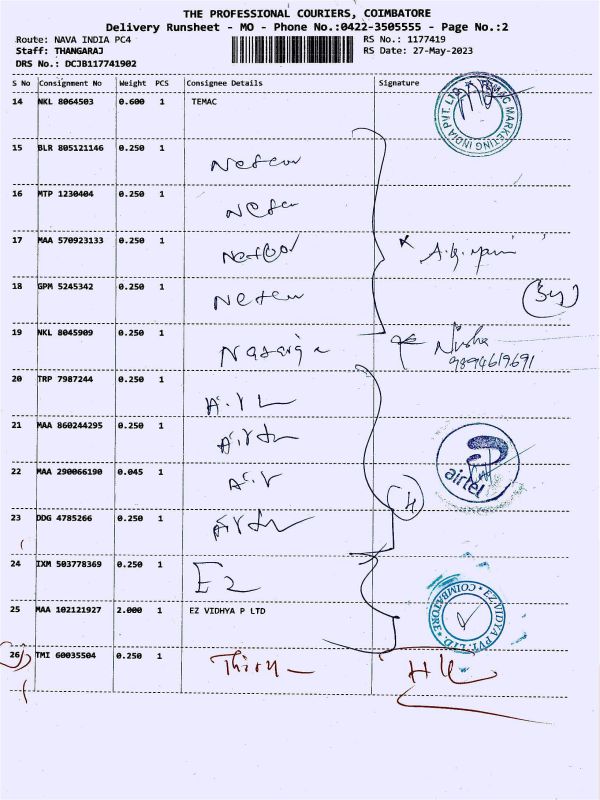 THE PROFESSIONAL COURIERS, COIMBATORE
Delivery Runsheet - MO - Phone No.:0422-3505555 - Page No.:2
Route: NAVA INDIA PC4
RS No.: 1177419
Staff: THANGARAJ
RS Date: 27-May-2023
DRS No.: DCJB117741902
S No Consignment No Weight PCS Consignee Details Signature
14 NKL 8064503 0.600 1 TEMAC
MARKETING INDIA PVT. LTD
15 BLR 805121146 0.250 1 Netcon
16 MTP 1230404 0.250 1
17 MAA 570923133 0.250 1
18 GPM 5245342 0.250 1 Netcon
19 NKL 8045909 0.250 1 Nisha
9894619691
20 TRP 7987244 0.250 1
21 MAA 860244295 0.250 1
airtel
22 MAA 290066190 0.045 1
23 DDG 4785266 0.250 1
24 IXM 503778369 0.250 1 EZ
25 MAA 102121927 2.000 1 EZ VIDHYA P LTD
EZVIDYA PVT. LTD. COIMBATORE
26 TMI 60035504 0.250 1